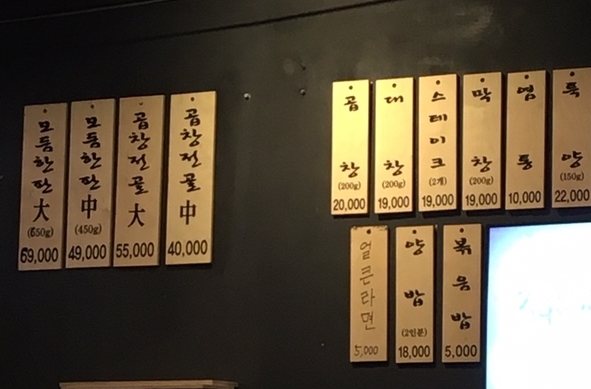 모둠한판 大
(650g)
69,000
모둠한판 中
(450g)
49,000
곱창전골 大
55,000
곱창전골 中
40,000
곱창
(200g)
20,000
대창
(200g)
19,000
스테이크
(2개)
19,000
막창
(200g)
19,000
염통
10,000
특양
(150g)
22,000
얼큰라면
5,000
양밥
(2인분)
18,000
볶음밥
5,000